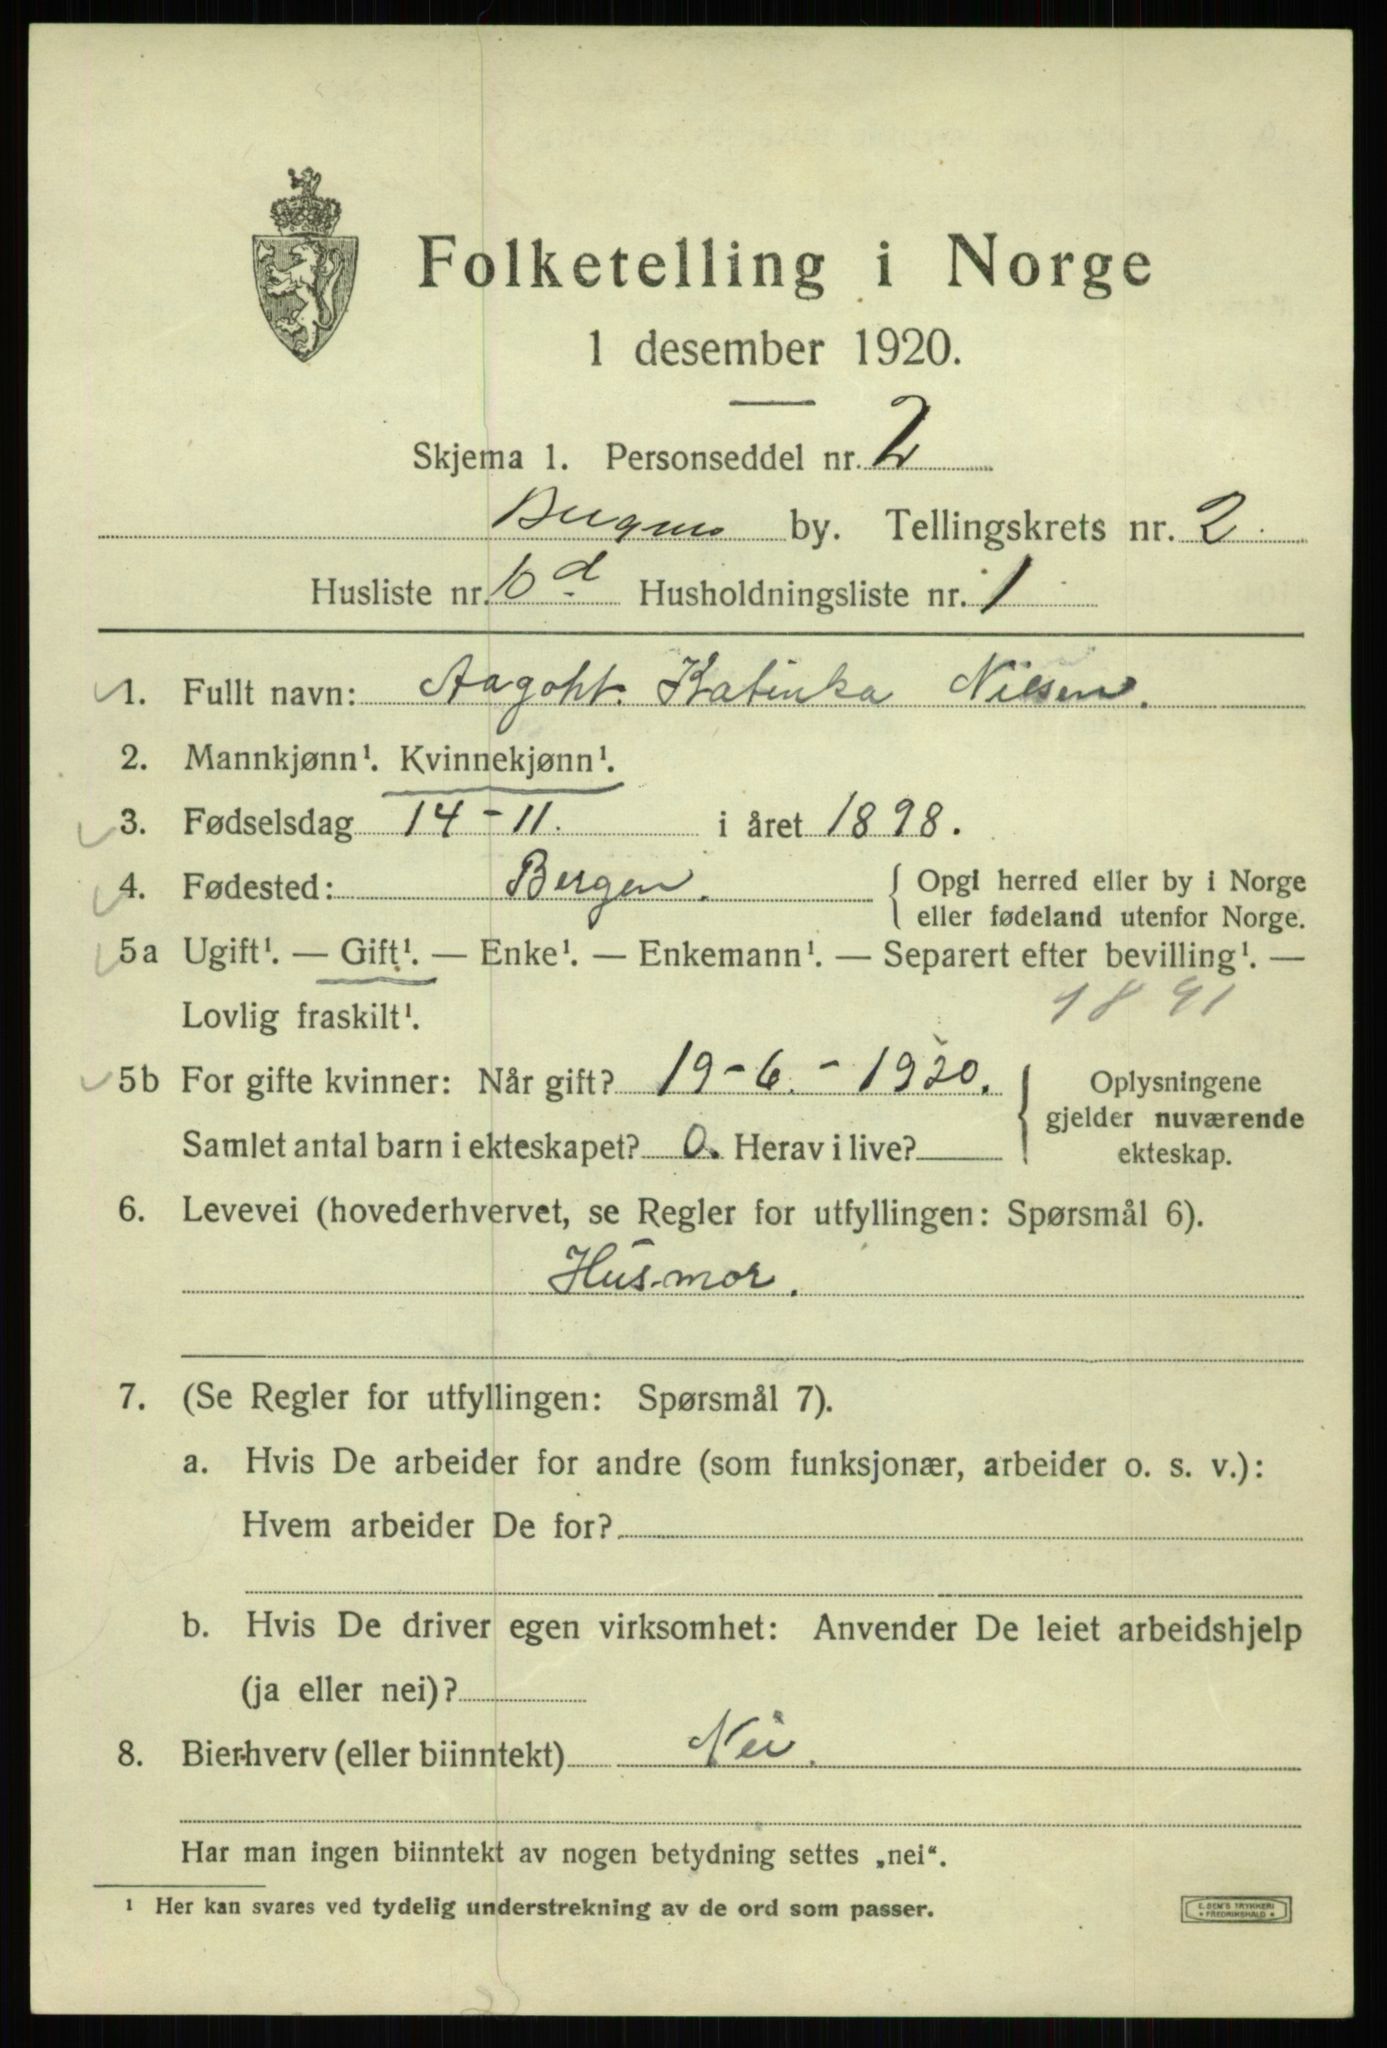 Folketelling i Norge
1 desember 1920.
Skjema 1. Personseddel nr. 2
Bergens by. Tellingskrets nr. 2.
Husliste nr. 10 d Husholdningsliste nr. 1
1. Fullt navn: Aagoht Katinka Nilsen.
2. Mannkjønn¹. Kvinnekjønn¹.
3. Fødselsdag 14-11. i året 1898.
4. Fødested: Bergen. { Opgi herred eller by i Norge
eller fødeland utenfor Norge.
5a Ugift¹. — Gift¹. — Enke¹. — Enkemann¹. — Separert efter bevilling¹. —
Lovlig fraskilt¹.
5b For gifte kvinner: Når gift? 19-6.-1920. { Oplysningene
gjelder nuværende
Samlet antal barn i ekteskapet? 0. Herav i live?
ekteskap.
6. Levevei (hovederhvervet, se Regler for utfyllingen: Spørsmål 6).
Husmor.
7. (Se Regler for utfyllingen: Spørsmål 7).
a. Hvis De arbeider for andre (som funksjonær, arbeider o. s. v.):
Hvem arbeider De for?
b. Hvis De driver egen virksomhet: Anvender De leiet arbeidshjelp
(ja eller nei)?
8. Bierhverv (eller biinntekt) Nei.
Har man ingen biinntekt av nogen betydning settes „nei“.
¹ Her kan svares ved tydelig understrekning av de ord som passer.
E. SEM'S TRYKKERI
* FREDRIKSHALD *